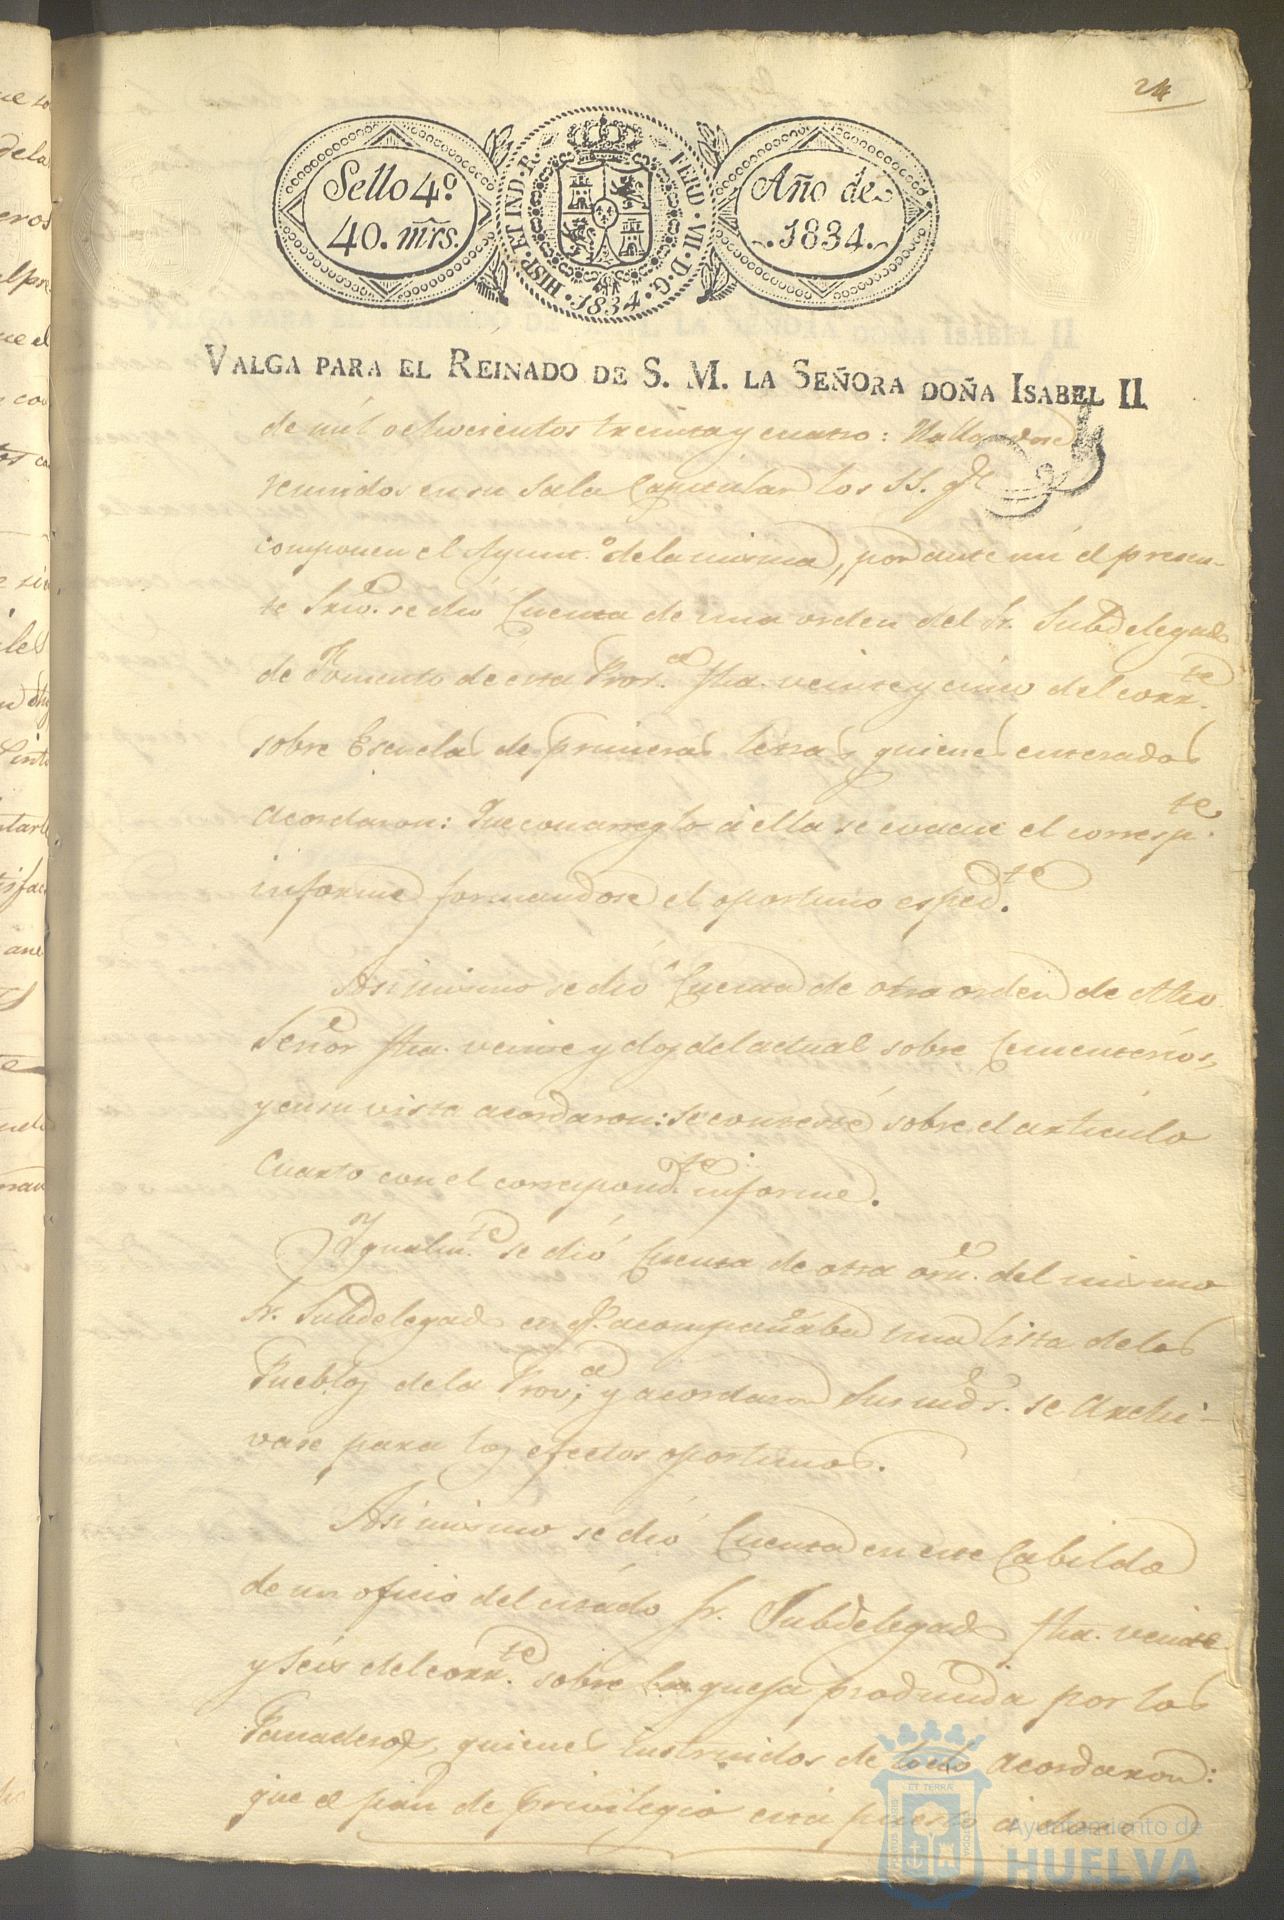 24
Sello 4º
40. mrs.
HISP. ET IND. R. FERD. VII. D. G. 1834.
Año de
1834.
VALGA PARA EL REINADO DE S. M. LA SEÑORA DOÑA ISABEL II
de mil ochocientos treinta y cuatro: Hallandose
reunidos en su Sala Capitular los SS. qe
componen el Ayunt.º de la misma, por ante mi el presen-
te Srio. se dió Cuenta de una orden del Sr. Subdelegado
de Fomento de esta Prov.a fha. veinte y cinco del corr.te
sobre Escuelas de primeras letras, quienes enterados
acordaron: Que con arreglo á ella se evacue el corresp.te
informe formandose el oportuno esped.te
Asi mismo se dió Cuenta de otra orden de dho.
Señor fha. veinte y dos del actual sobre Cementerios,
y en su vista acordaron: Se conteste sobre el articulo
Cuarto con el correspond.te informe.
Ygualm.te se dió Cuenta de otra orn. del mismo
Sr. Subdelegado en q.e acompañaba una lista de los
Pueblos de la Prov.a; y acordaron Sus mds. se Archi-
vase para los efectos oportunos.
Asi mismo se dió Cuenta en este Cabildo
de un oficio del citado Sr. Subdelegado fha. veinte
y Seis del corr.te sobre la queja producida por los
Panaderos, quienes instruidos de todo acordaron:
que el pan de Privilegio está puesto á
Ayuntamiento de
HUELVA